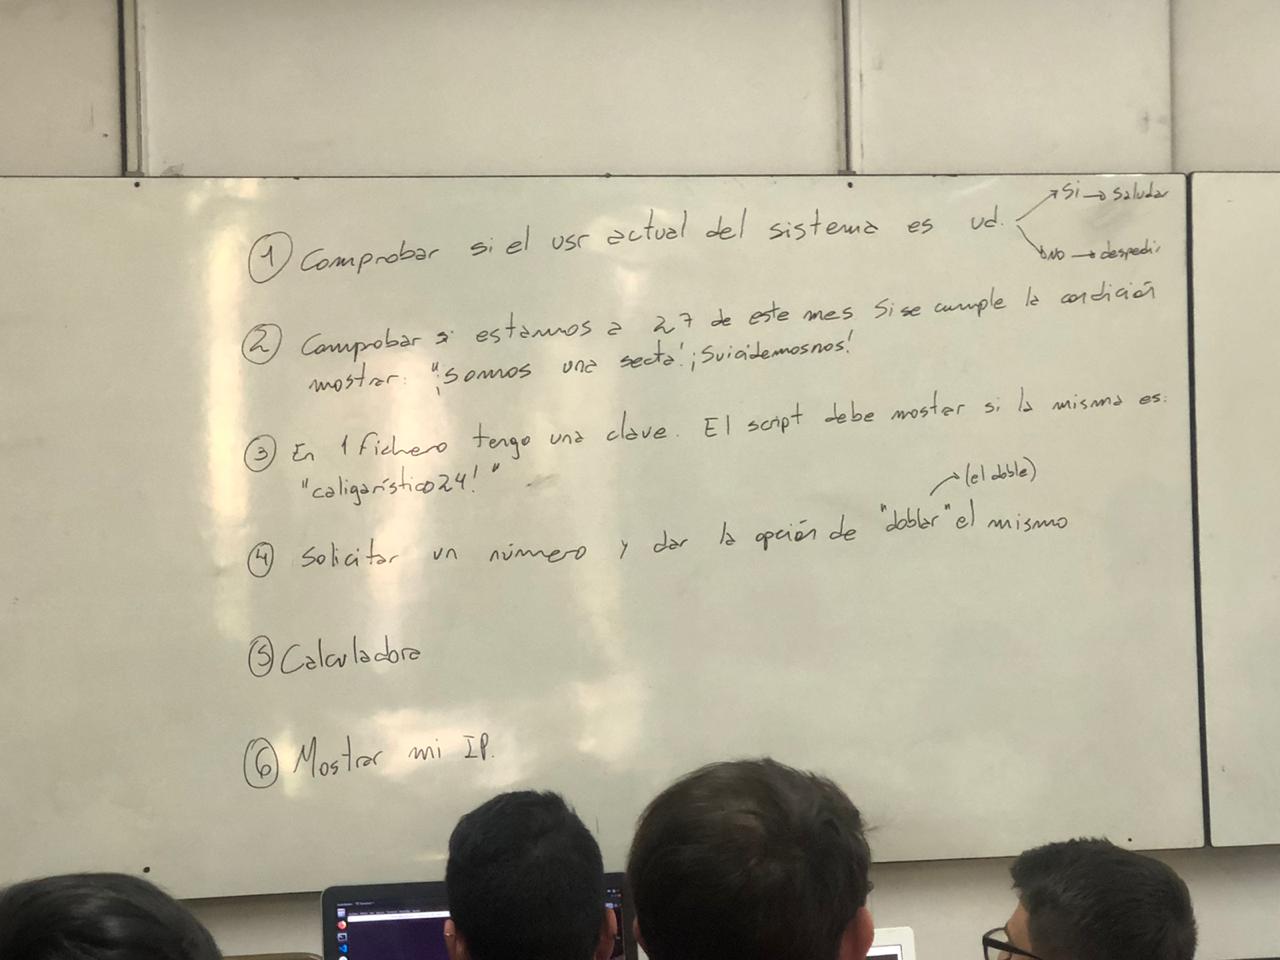 ① Comprobar si el usr actual del sistema es ud.
Si → saludar
No → despedir
② Comprobar si estamos a 27 de este mes Si se cumple la condición
mostrar: "¡Somos una secta! ¡Suicidemosnos!
③ En 1 fichero tengo una clave. El script debe mostrar si la misma es:
"caligarístico24!"
(el doble)
④ Solicitar un número y dar la opción de "doblar" el mismo
⑤ Calculadora
⑥ Mostrar mi IP.